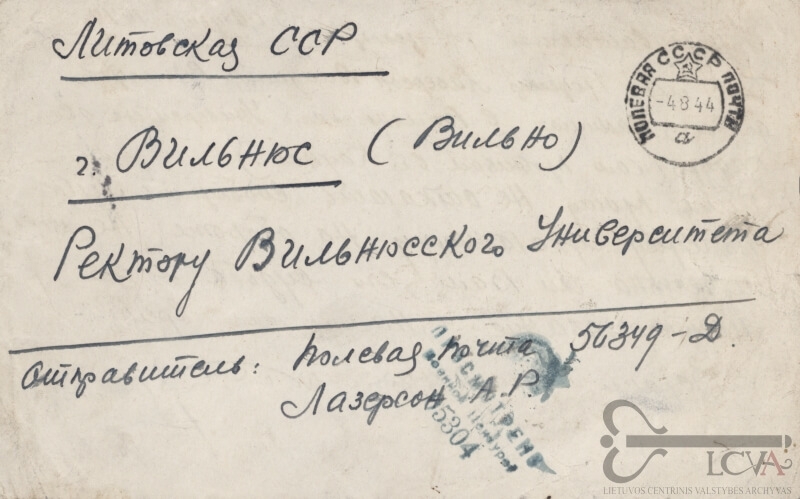 Литовская ССР
г. Вильнюс (Вильно)
Ректору Вильнюсского Университета
Отправитель: Полевая почта 56349-Д
Лазерсон А.Р.
ПОЛЕВАЯ СССР ПОЧТА
-4 8 44
а
ПРОСМОТРЕНО
Военной Цензурой
15304
LCVA
LIETUVOS CENTRINIS VALSTYBĖS ARCHYVAS